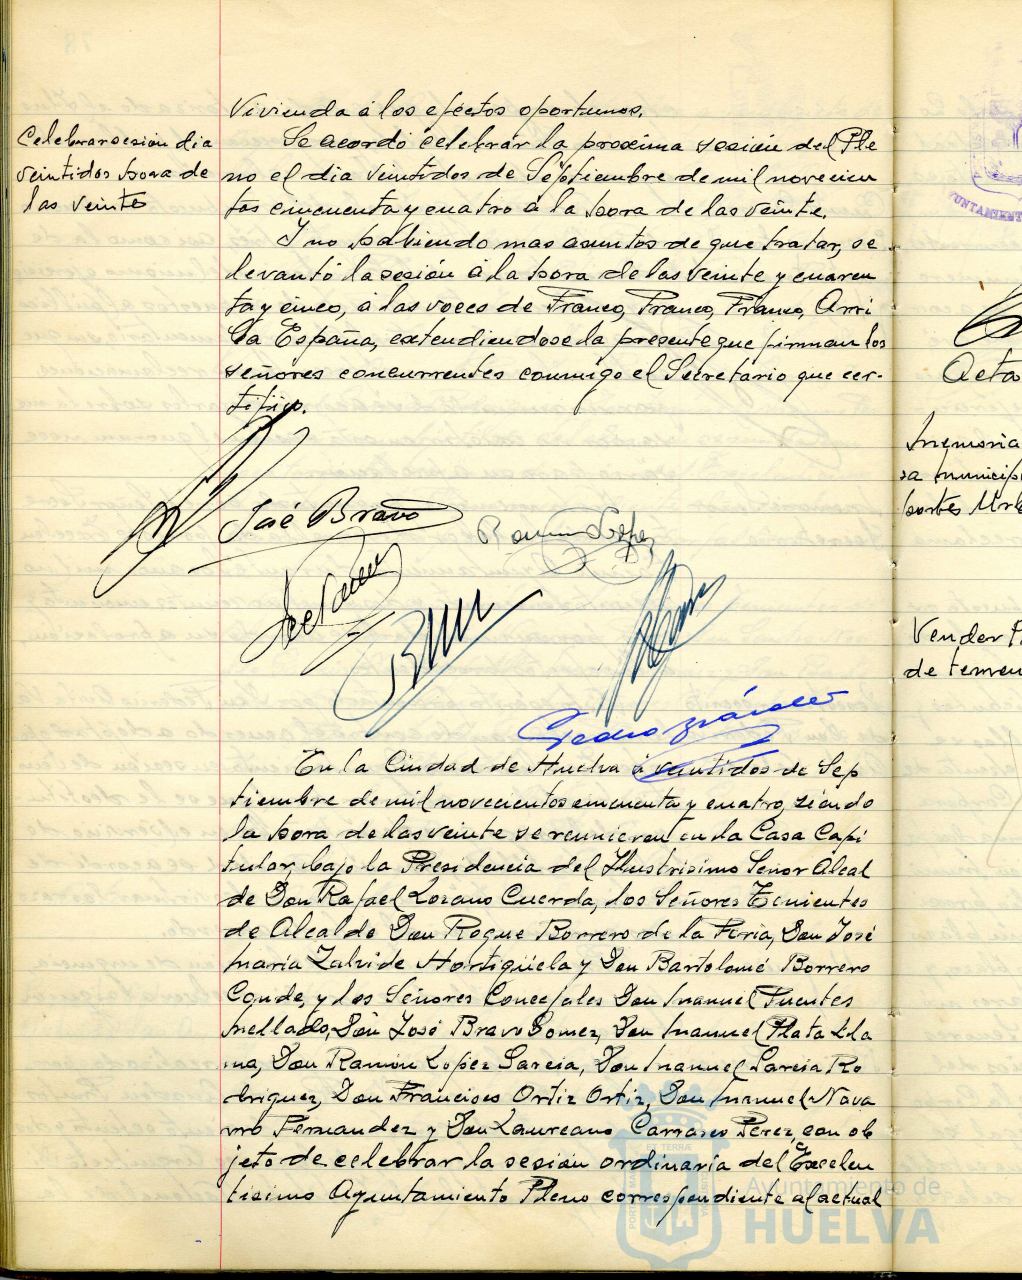 Vivienda á los efectos oportunos.
Celebrar sesion dia
veintidos hora de
las veinte
Se acordó celebrar la proxima sesión del Ple
no el dia veintidos de Septiembre de mil novecien
tos cincuenta y cuatro á la hora de las veinte.
Y no habiendo mas asuntos de que tratar, se
levantó la sesión á la hora de las veinte y cuaren
ta y cinco, á las voces de Franco, Franco, Franco, Arri
ba España, extendiendose la presente que firman los
señores concurrentes conmigo el Secretario que cer-
tifico.
José Bravo
Ramon Lopez
Pedro
En la Ciudad de Huelva á veintidos de Sep
tiembre de mil novecientos cincuenta y cuatro, siendo
la hora de las veinte se reunieron en la Casa Capi
tular, bajo la Presidencia del Ilustrisimo Señor Alcal
de Don Rafael Lozano Cuerda, los Señores Tenientes
de Alcalde Don Roque Borrero de la Feria, Don José
María Zalvide Hortigüela y Don Bartolomé Borrero
Conde, y los Señores Concejales Don Manuel Fuentes
Mellado, Don José Bravo Gomez, Don Manuel Plata Lla
ma, Don Ramón Lopez Garcia, Don Manuel Garcia Ro
driguez, Don Francisco Ortiz Ortiz, Don Manuel Nava
rro Fernandez y Don Laureano Carrasco Perez, con ob
jeto de celebrar la sesión ordinaria del Excelen
tisimo Ayuntamiento Pleno correspondiente al actual
Acta
Memoria
sa municip
portes Urb
Vender
de terren
Ayuntamiento de
HUELVA